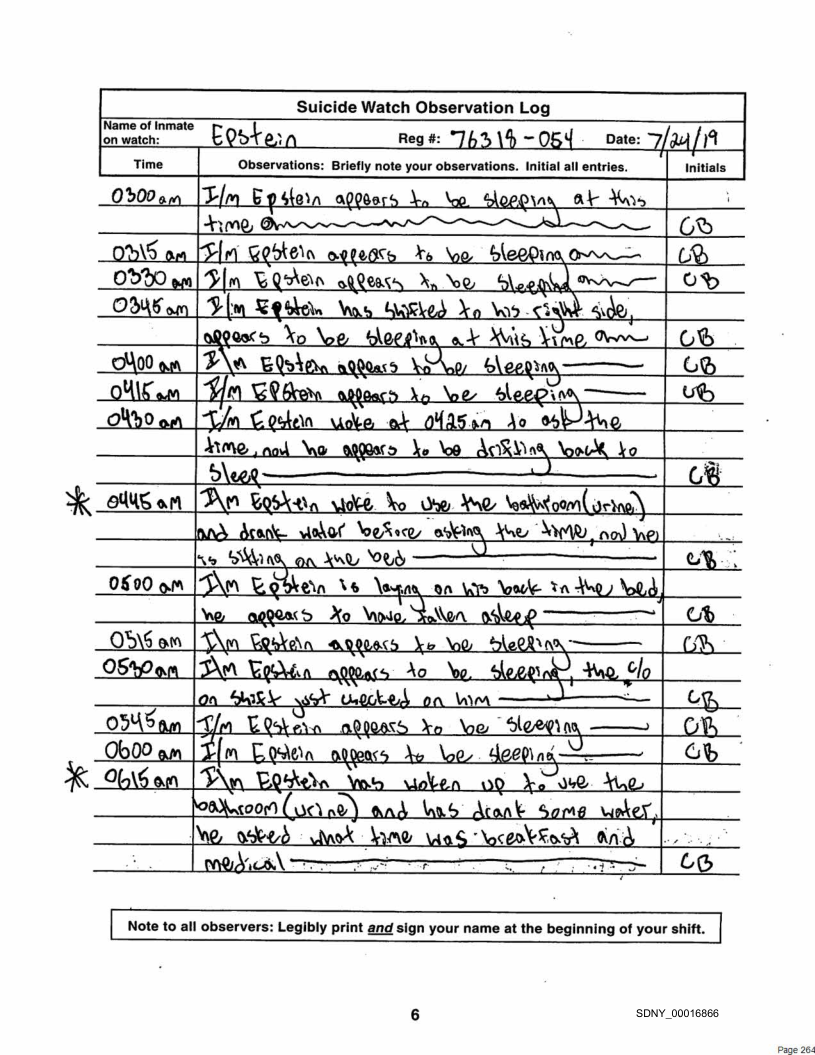 Suicide Watch Observation Log
Name of Inmate on watch: Epstein Reg #: 76318-054 Date: 7/24/19
Time Observations: Briefly note your observations. Initial all entries. Initials
0300 am I/m Epstein appears to be sleeping at this
time CB
0315 am I/m Epstein appears to be sleeping CB
0330 am I/m Epstein appears to be sleeping CB
0345 am I/m Epstein has shifted to his right side,
appears to be sleeping at this time CB
0400 am I\m Epstein appears to be sleeping CB
0415 am I/m Epstein appears to be sleeping CB
0430 am I/m Epstein woke at 0425 am to ask the
time, now he appears to be drifting back to
sleep CB
* 0445 am I\m Epstein woke to use the bathroom (urine)
and drank water before asking the time, now he
is sitting on the bed CB
0500 am I\m Epstein is laying on his back in the bed,
he appears to have fallen asleep CB
0515 am I\m Epstein appears to be sleeping CB
0530 am I\m Epstein appears to be sleeping, the c/o
on shift just checked on him CB
0545 am I/m Epstein appears to be sleeping CB
0600 am I/m Epstein appears to be sleeping CB
* 0615 am I\m Epstein has woken up to use the
bathroom (urine) and has drank some water,
he asked what time was breakfast and
medical CB
Note to all observers: Legibly print and sign your name at the beginning of your shift.
6 SDNY_00016866
Page 264